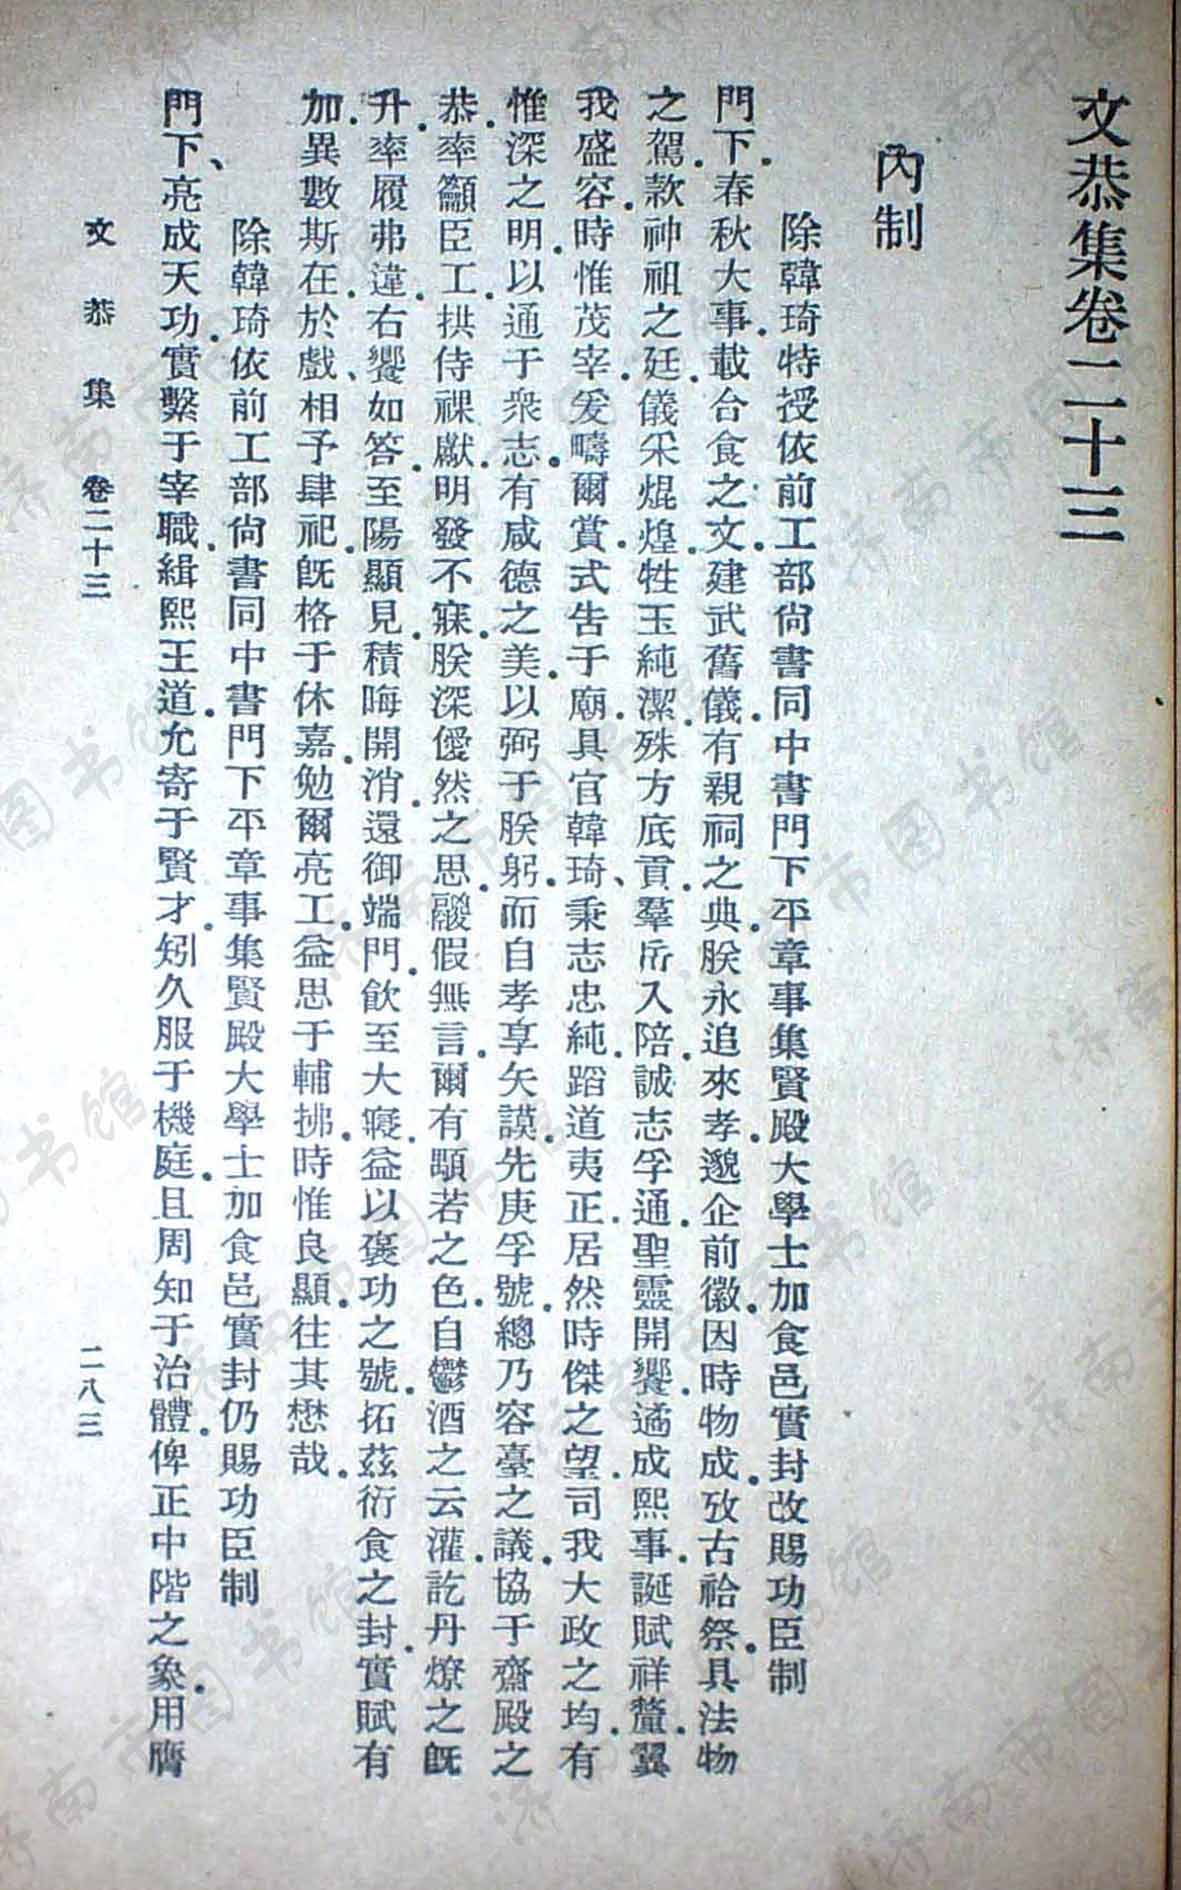 文恭集卷二十三
內制
除韓琦特授依前工部尙書同中書門下平章事集賢殿大學士加食邑實封改賜功臣制
門下春秋大事載合食之文建武舊儀有親祠之典朕永追來孝邈企前徽因時物成攷古祫祭具法物
之駕款神祖之廷儀采焜煌牲玉純潔殊方底貢羣后入陪誠志孚通聖靈開饗遹成熙事誕賦祥釐翼
我盛容時惟茂宰爰疇爾賞式告于廟具官韓琦秉志忠純蹈道夷正居然時傑之望司我大政之均有
惟深之明以通于衆志有咸德之美以弼于朕躬而自孝享矢謨先庚孚號總乃容臺之議協于齋殿之
恭率籲臣工拱侍祼獻明發不寐朕深僾然之思鬷假無言爾有顒若之色自鬱酒之云灌訖丹燎之旣
升率履弗違右饗如答至陽顯見積晦開消還御端門飮至大寢益以褒功之號拓茲衍食之封實賦有
加異數斯在於戲相予肆祀旣格于休嘉勉爾亮工益思于輔拂時惟良顯往其懋哉
除韓琦依前工部尙書同中書門下平章事集賢殿大學士加食邑實封仍賜功臣制
門下亮成天功實繫于宰職緝熙王道允寄于賢才矧久服于機庭且周知于治體俾正中階之象用膺
文恭集 卷二十三 二八三